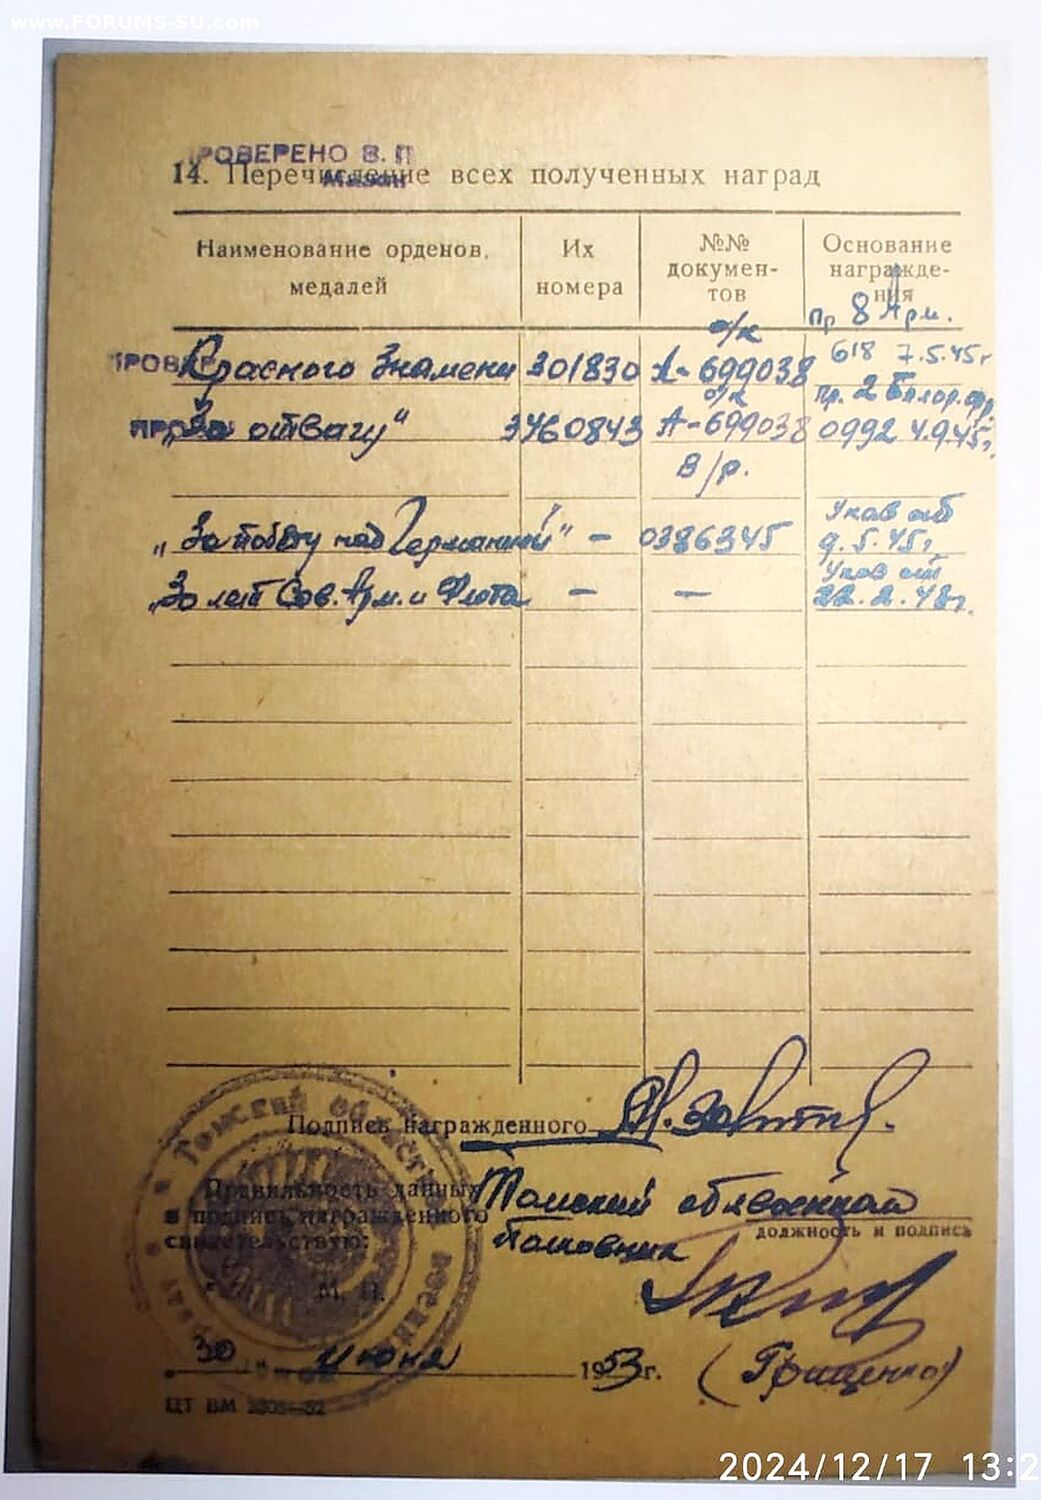 www.FORUMS-SU.com
ПРОВЕРЕНО В. П
14. Перечисление всех полученных наград
Наименование орденов, медалей
Их номера
№№ докумен-тов
Основание награжде-ния
Пр 8 Арм.
о/к
618 7.5.45г
Красного Знамени 301830 А-699038
о/к
пр. 2 Белор. фр.
„За отвагу" 3460843 А-699038 0992 4.9.45г.
В/р.
Указ от
„За победу над Германией" – 0386345 9.5.45г
Указ от
„30 лет Сов. Арм. и Флота – – 22.2.48г.
Подпись награжденного
Правильность данных Томский облвоенком
и подпись награжденного
должность и подпись
свидетельствую: Полковник
М. П.
30 июня 1953 г. (Грищенко)
ЦТ ВМ
2024/12/17 13:2